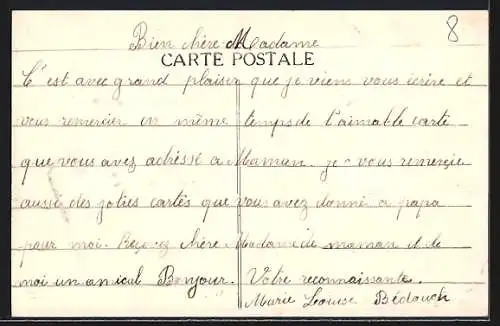 8
Bien chère Madame
CARTE POSTALE
C'est avec grand plaisir que je viens vous écrire et
vous remercier en même temps de l'aimable carte
que vous avez adressé a Maman. je vous remerçie
aussi des jolies cartes que vous avez donné a papa
pour moi. Reçevez chère Madame de maman et de
moi un amical Bonjour. Votre reconnaissante.
Marie Louise Bédouch